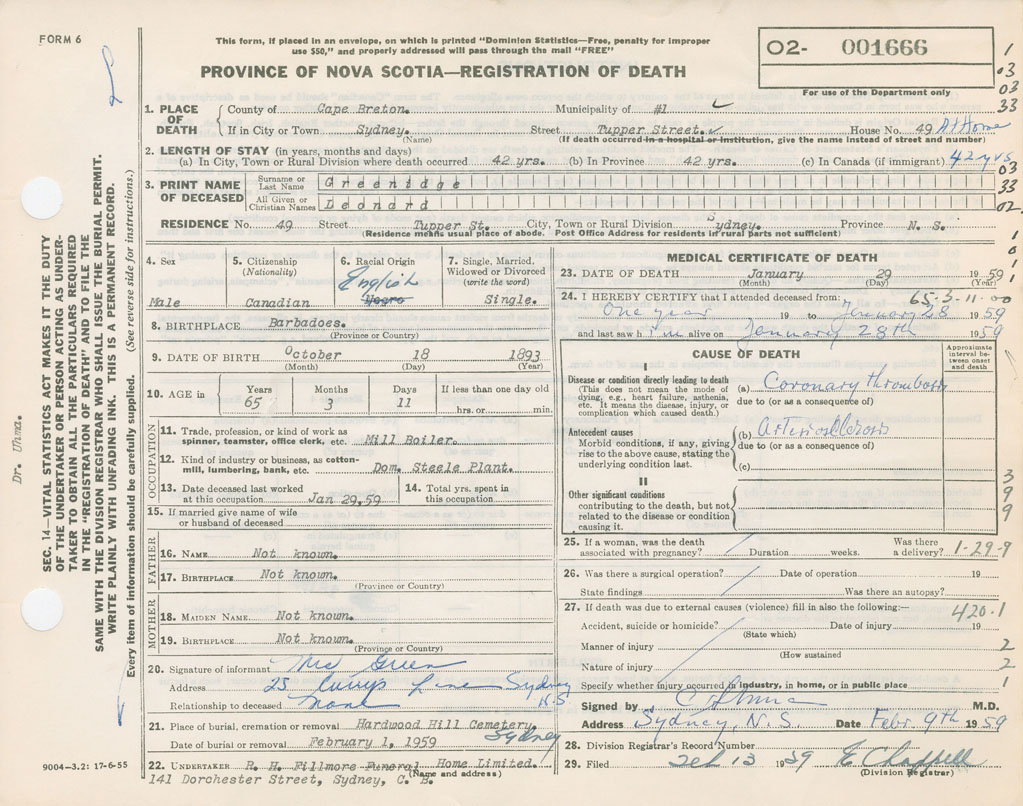 FORM 6
This form, if placed in an envelope, on which is printed "Dominion Statistics—Free, penalty for improper
use $50," and properly addressed will pass through the mail "FREE"
O2- 001666
For use of the Department only
PROVINCE OF NOVA SCOTIA—REGISTRATION OF DEATH
1
03
03
33
1. PLACE OF DEATH County of Cape Breton. Municipality of #1
If in City or Town Sydney. Street Tupper Street. House No. 49 At Home
(Name) (If death occurred in a hospital or institution, give the name instead of street and number)
2. LENGTH OF STAY (in years, months and days)
(a) In City, Town or Rural Division where death occurred 42 yrs. (b) In Province 42 yrs. (c) In Canada (if immigrant) 42 yrs
03
33
02.
3. PRINT NAME OF DECEASED
Surname or Last Name Greenidge
All Given or Christian Names Leonard
RESIDENCE No. 49 Street Tupper St. City, Town or Rural Division Sydney. Province N. S.
(Residence means usual place of abode. Post Office Address for residents in rural parts not sufficient)
4. Sex
Male
5. Citizenship
(Nationality)
Canadian
6. Racial Origin
English
Negro
7. Single, Married,
Widowed or Divorced
(write the word)
Single.
8. BIRTHPLACE Barbadoes.
(Province or Country)
9. DATE OF BIRTH October 18 1893
(Month) (Day) (Year)
10. AGE in
Years Months Days If less than one day old
65 3 11 hrs. or min.
OCCUPATION
11. Trade, profession, or kind of work as
spinner, teamster, office clerk, etc. Mill Boiler.
12. Kind of industry or business, as cotton-
mill, lumbering, bank, etc. Dom. Steele Plant.
13. Date deceased last worked
at this occupation Jan 29,59
14. Total yrs. spent in
this occupation
15. If married give name of wife
or husband of deceased
FATHER
16. NAME Not known.
17. BIRTHPLACE Not known.
(Province or Country)
MOTHER
18. MAIDEN NAME Not known.
19. BIRTHPLACE Not known.
(Province or Country)
20. Signature of informant Mrs Green
Address 25 Line Sydney
N.S.
Relationship to deceased None
21. Place of burial, cremation or removal Hardwood Hill Cemetery.
Sydney
Date of burial or removal February 1, 1959
22. UNDERTAKER R. H. Fillmore Funeral Home Limited.
(Name and address)
141 Dorchester Street, Sydney, C. B.
MEDICAL CERTIFICATE OF DEATH
23. DATE OF DEATH January 29 1959
(Month) (Day) (Year)
24. I HEREBY CERTIFY that I attended deceased from: 65-3-11-00
One year 19 to January 28 1959
and last saw h im alive on January 28th 1959
CAUSE OF DEATH
Approximate
interval be-
tween onset
and death
I
Disease or condition directly leading to death
(This does not mean the mode of
dying, e.g., heart failure, asthenia,
etc. It means the disease, injury, or
complication which caused death.)
(a) Coronary thrombosis
due to (or as a consequence of)
Antecedent causes
Morbid conditions, if any, giving
rise to the above cause, stating the
underlying condition last.
(b) Arteriosclerosis
due to (or as a consequence of)
(c)
II
Other significant conditions
contributing to the death, but not
related to the disease or condition
causing it.
3
9
9
25. If a woman, was the death
associated with pregnancy? Duration weeks. Was there
a delivery? 1-29-9
26. Was there a surgical operation? Date of operation 19
State findings Was there an autopsy?
27. If death was due to external causes (violence) fill in also the following:—
420-1
Accident, suicide or homicide? Date of injury 19
(State which)
Manner of injury 2
(How sustained)
Nature of injury 2
Specify whether injury occurred in industry, in home, or in public place 1
Signed by M.D.
Address Sydney, N.S. Date Febr. 9th 1959
28. Division Registrar's Record Number
29. Filed Feb 13 1959 E Chappell
(Division Registrar)
SEC. 14—VITAL STATISTICS ACT MAKES IT THE DUTY
OF THE UNDERTAKER OR PERSON ACTING AS UNDER-
TAKER TO OBTAIN ALL THE PARTICULARS REQUIRED
IN THE "REGISTRATION OF DEATH" AND TO FILE THE
SAME WITH THE DIVISION REGISTRAR WHO SHALL ISSUE THE BURIAL PERMIT.
WRITE PLAINLY WITH UNFADING INK. THIS IS A PERMANENT RECORD.
Every item of information should be carefully supplied. (See reverse side for instructions.)
Dr. Uhma.
9004-3.2: 17-6-55